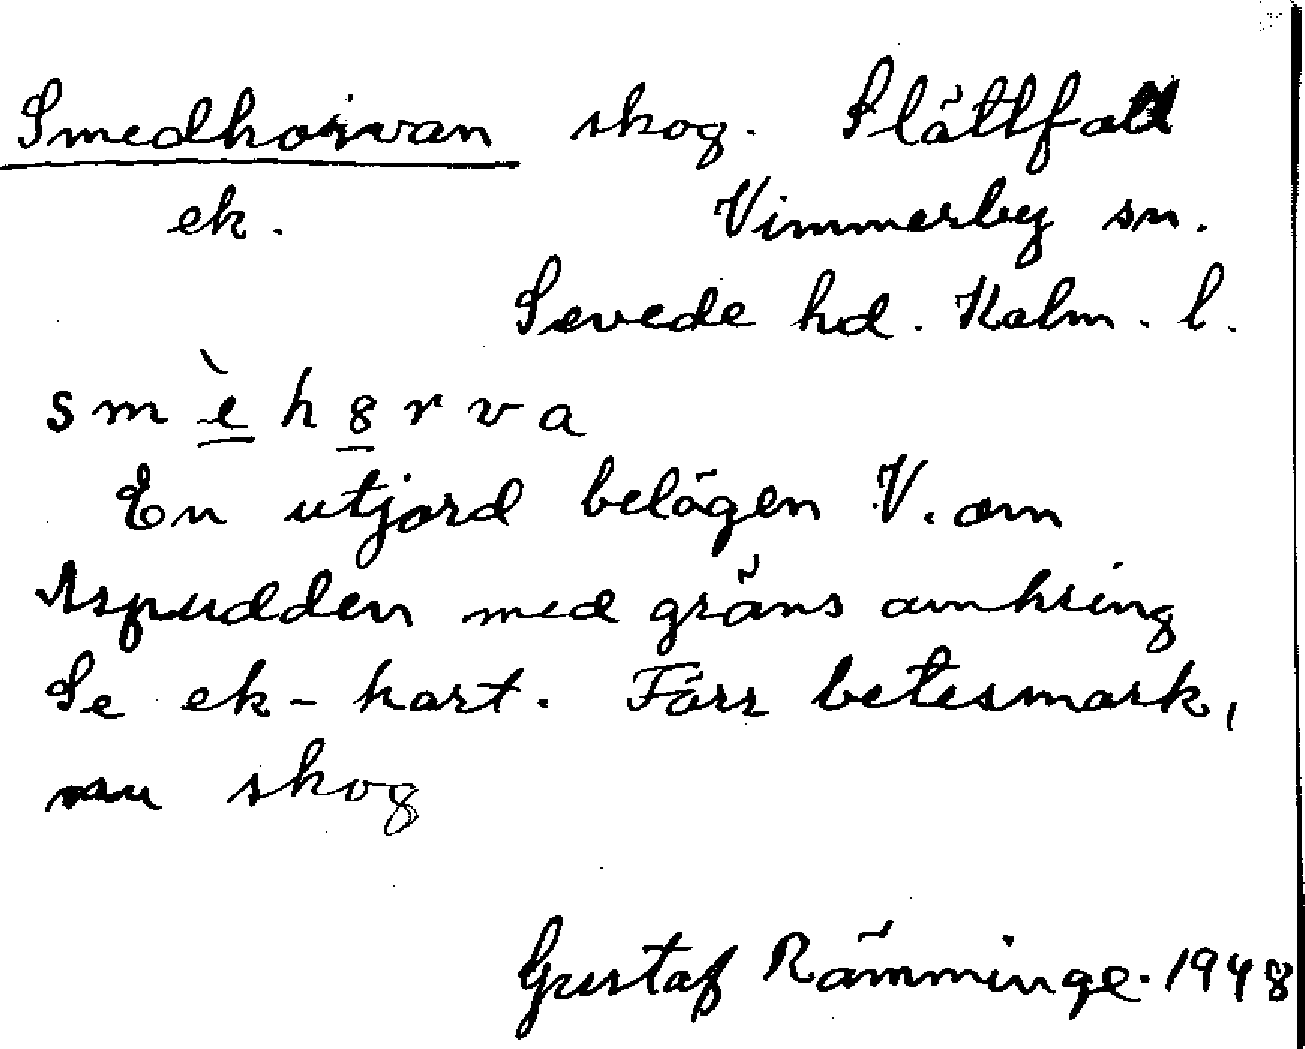 Smedhorvan skog. Slättfall
ek. Vimmerby sn.
Sevede hd. Kalm. l.
smèhȣrva
En utjord belägen V. om
Aspudden med gräns omkring
Se ek-kart. Förr betesmark,
nu skog
Gustaf Rämminge. 1948